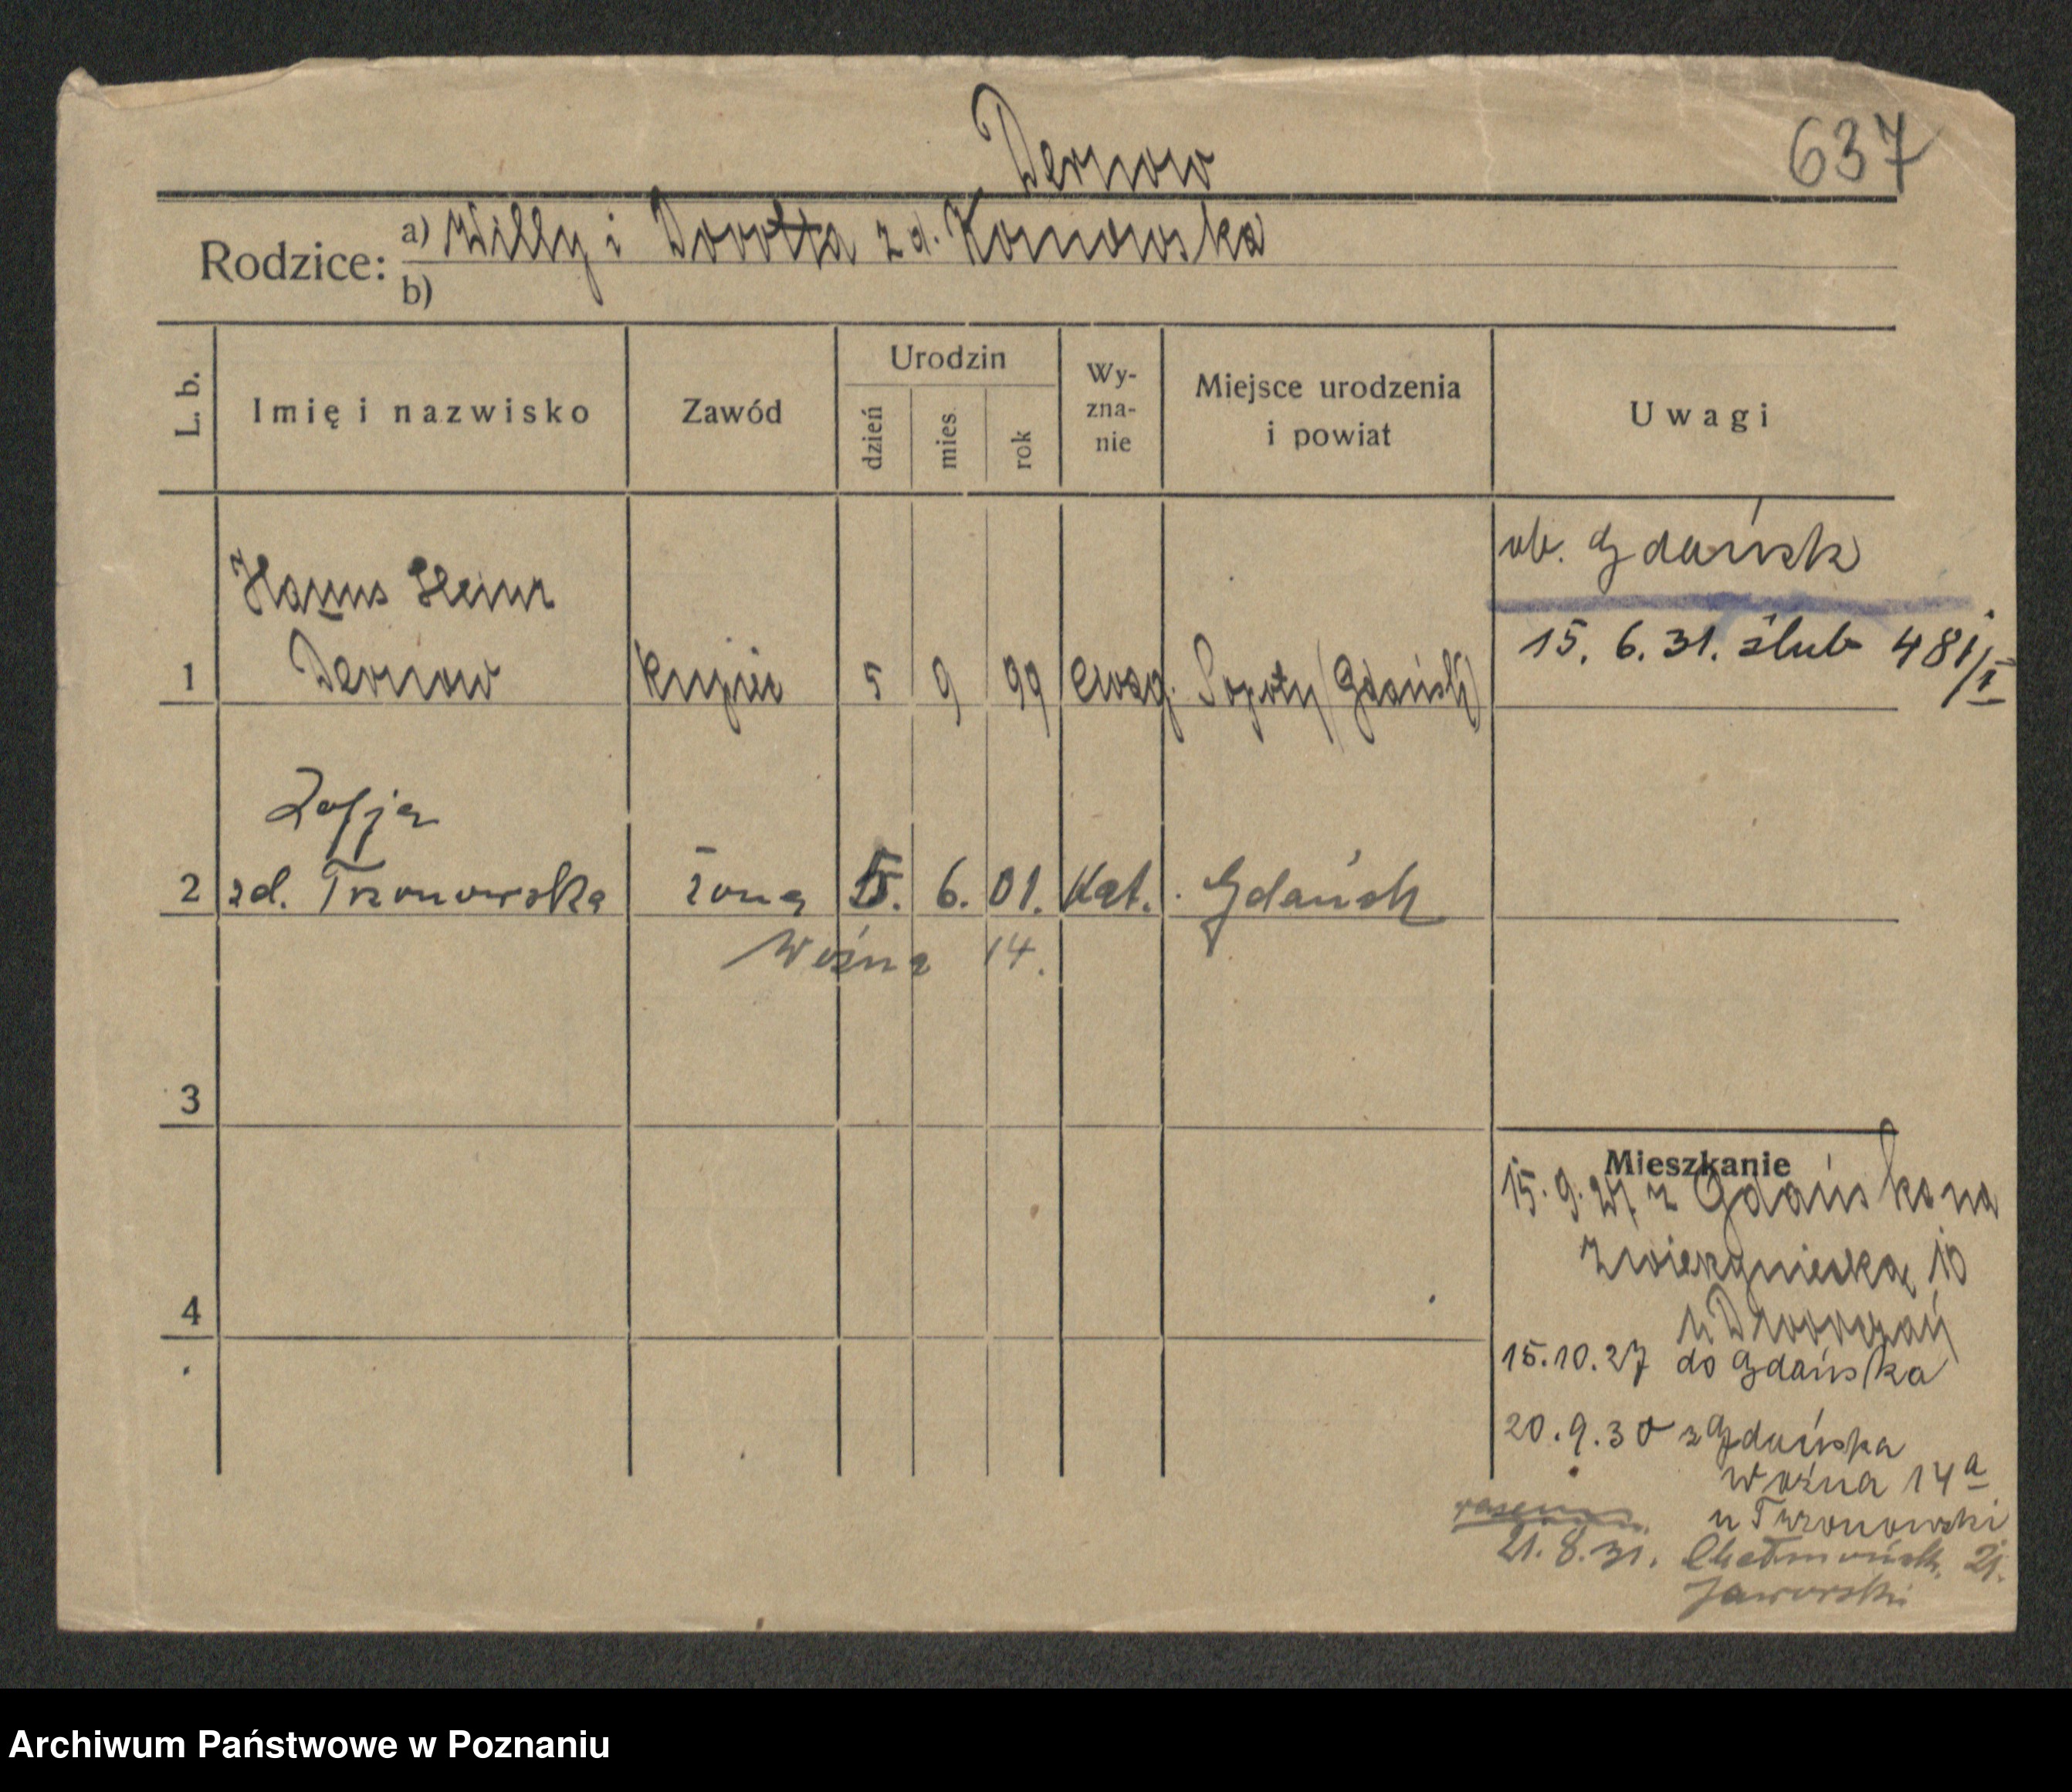 Dernow
637
Rodzice: a) Willy i Dorotta z d. Komowska
b)
L. b.
Imię i nazwisko
Zawód
Urodzin
dzień
mies.
rok
Wy-
zna-
nie
Miejsce urodzenia
i powiat
Uwagi
ob. Gdańsk
Hanns Heinr
1 Dernow kupiec 5 9 99 ewag. Sopoty (Gdańsk)
15. 6. 31. ślub 481/I
Zofja
2 zd. Trzonowska żona 5. 6. 01. Kat. Gdańsk
Woźna 14.
3
Mieszkanie
15.9.27. z Gdańska na
Zwierzyniecką 10
4
u
15.10.27 do Gdańska
20.9.30 z Gdańska
Woźna 14a
u Trzonowski
razem
21.8.31. Chełmońsk. 21.
Jaworski
Archiwum Państwowe w Poznaniu